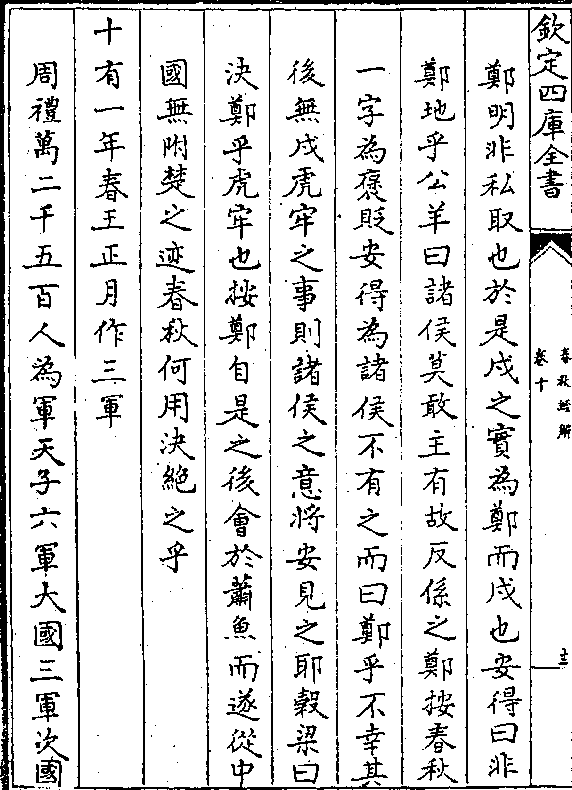 欽定四庫全書
春秋經解
卷十
十三
鄭明非私取也於是戍之實為鄭而戍也安得曰非
鄭地乎公羊曰諸侯莫敢主有故反係之鄭按春秋
一字為褒貶安得為諸侯不有之而曰鄭乎不幸其
後無戍虎牢之事則諸侯之意將安見之耶穀梁曰
決鄭乎虎牢也按鄭自是之後會於蕭魚而遂從中
國無附楚之迹春秋何用決絶之乎
十有一年春王正月作三軍
周禮萬二千五百人為軍天子六軍大國三軍次國